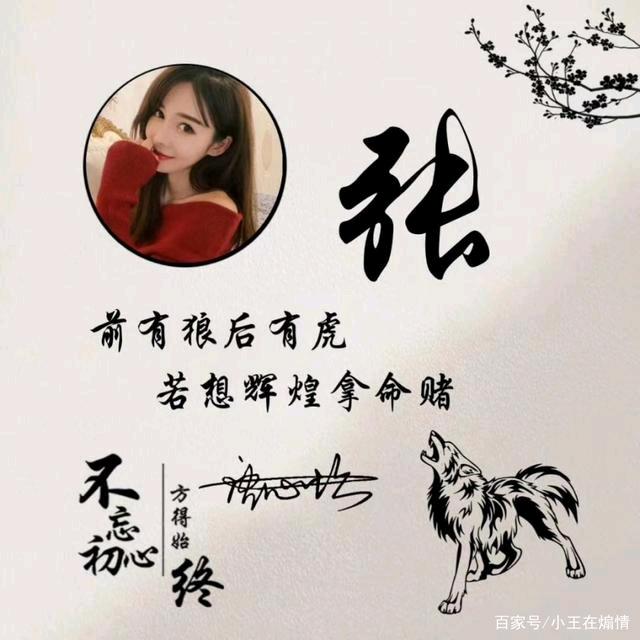 张
前有狼后有虎
若想辉煌拿命赌
不忘初心
方得始终
百家号/小王在煽情